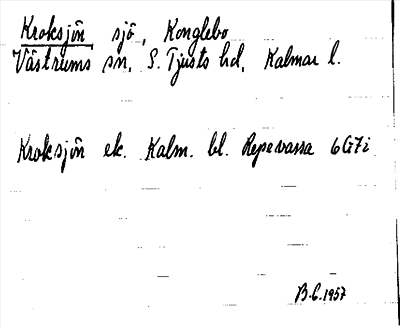 Kroksjön, sjö, Konglebo
Västrums sn, S. Tjusts hd, Kalmar l.
Kroksjön ek. Kalm. bl. Repevassa 6G7i
B.C. 1957